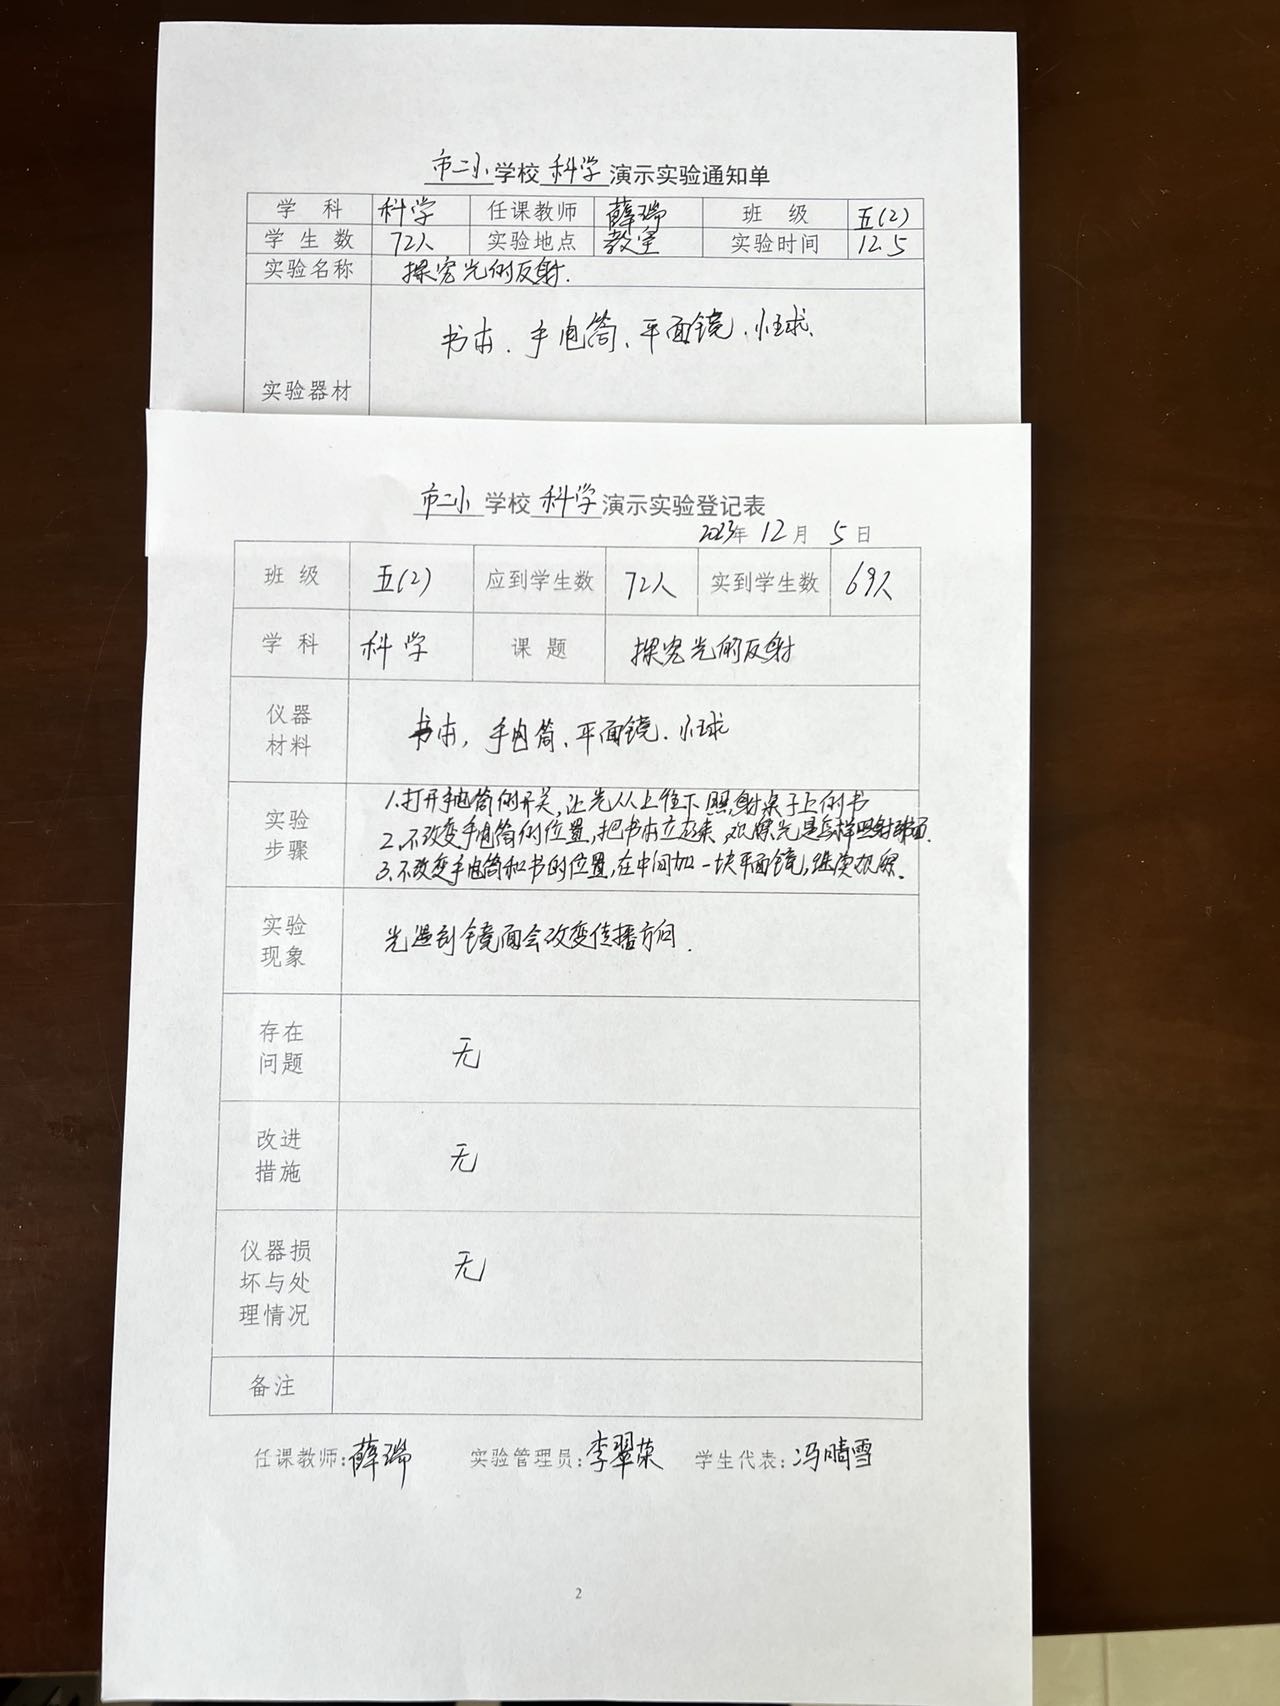 市二小学校科学演示实验通知单
学科 科学 任课教师 薛瑞 班级 五(2)
学生数 72人 实验地点 教室 实验时间 12.5
实验名称 探究光的反射.
实验器材 书本、手电筒、平面镜、
市二小学校科学演示实验登记表
2023年12月5日
班级 五(2) 应到学生数 72人 实到学生数 69人
学科 科学 课题 探究光的反射
仪器材料 书本, 手电筒、平面镜、
实验步骤 1.打开手电筒的开关,让光从上往下照射桌子上的书
2.不改变手电筒的位置,把书本立起来,观察光是怎样照射
3.不改变手电筒和书的位置,在中间加一块平面镜,继续观察.
实验现象 光遇到镜面会改变传播方向.
存在问题 无
改进措施 无
仪器损坏与处理情况 无
备注
任课教师:薛瑞 实验管理员:李翠荣 学生代表:冯晴雪
2